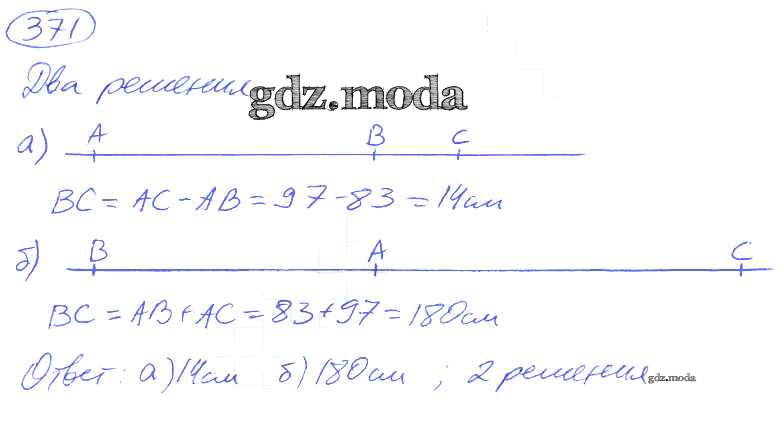 371
Два решения
gdz.moda
а) A B C
BC = AC - AB = 97 - 83 = 14 см
б) B A C
BC = AB + AC = 83 + 97 = 180 см
Ответ: а) 14 см б) 180 см ; 2 решения
gdz.moda